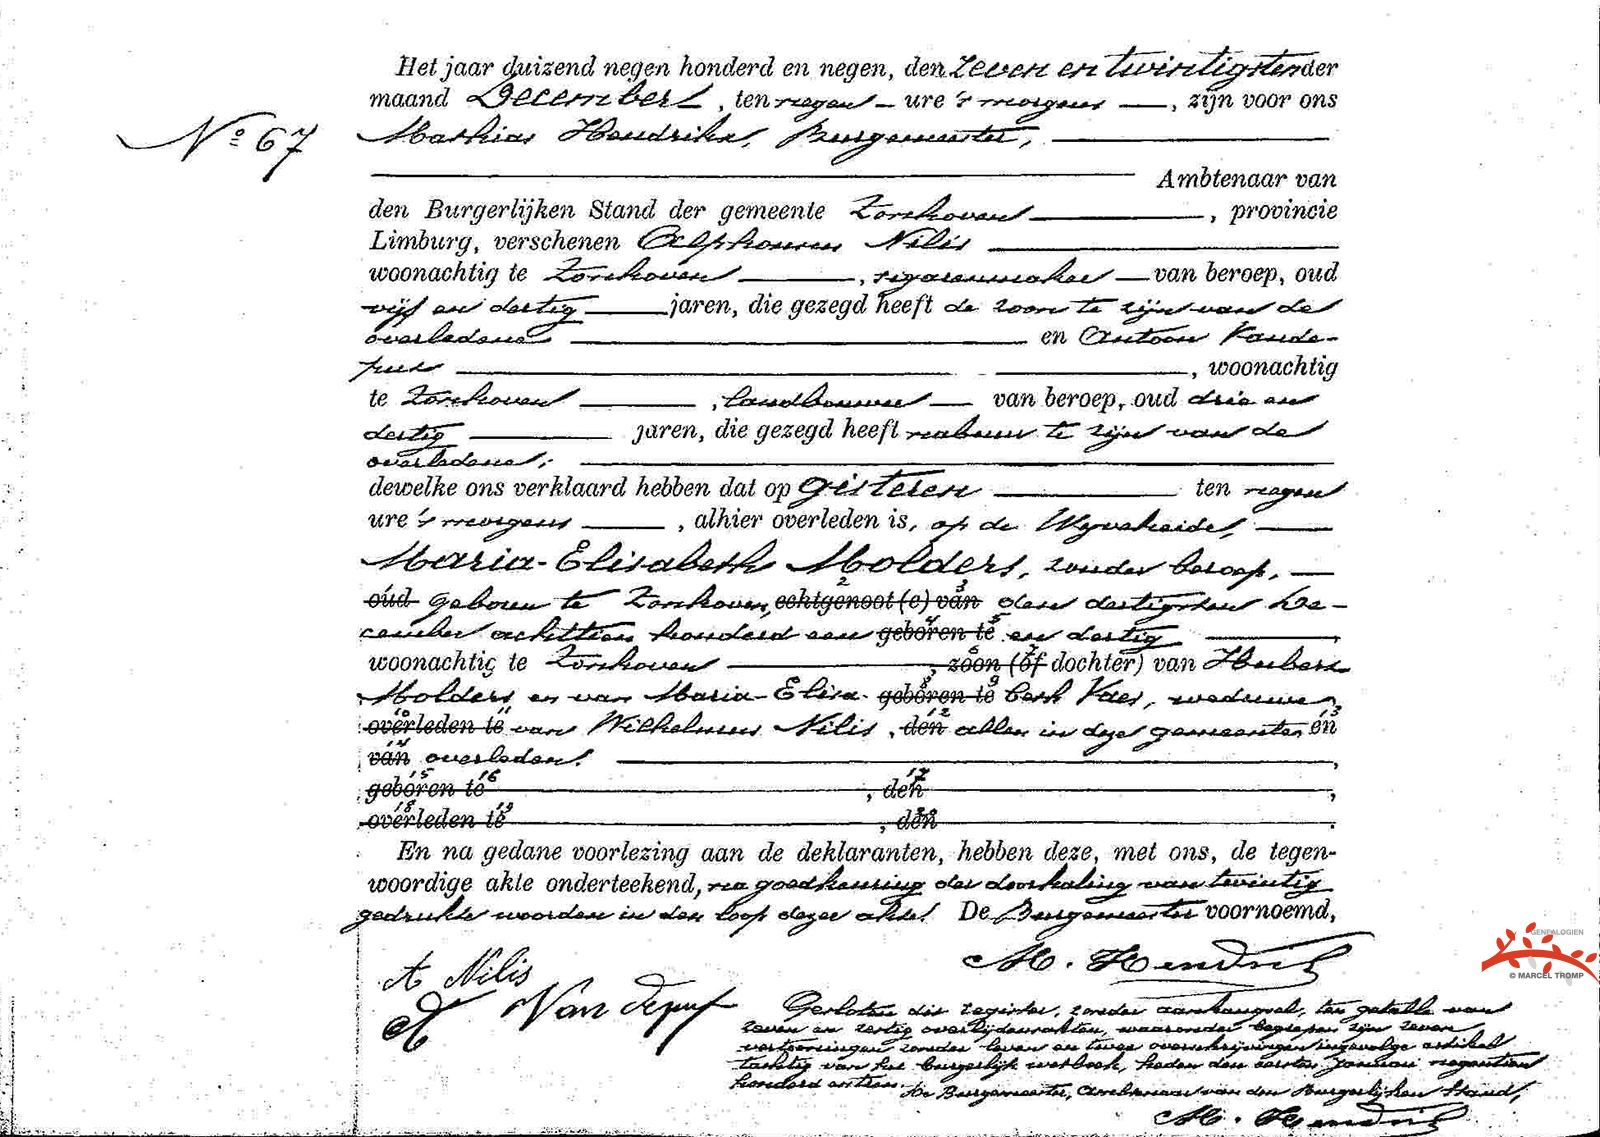 Het jaar duizend negen honderd en negen, den zeven en twintigsten der
maand December, ten negen ure 's morgens, zijn voor ons
N° 67
Mathias Hendrikx, Burgemeester,
Ambtenaar van
den Burgerlijken Stand der gemeente Zonhoven, provincie
Limburg, verschenen Alphonsus Nilis
woonachtig te Zonhoven, sigarenmaker van beroep, oud
vijf en dertig jaren, die gezegd heeft de zoon te zijn van de
overledene en Antoon Vande-
put, woonachtig
te Zonhoven, landbouwer van beroep, oud drie en
dertig jaren, die gezegd heeft nabuur te zijn van de
overledene;
dewelke ons verklaard hebben dat op gisteren ten negen
ure 's morgens, alhier overleden is, op de Wyvesheide,
Maria-Elisabeth Molders, zonder beroep,
oud geboren te Zonhoven, echtgenoot (e) van den dertigsten De-
cember achttien honderd een geboren te en dertig
woonachtig te Zonhoven, zoon (of dochter) van Hubert
Molders en van Maria-Elisa- geboren te beth Vaes, weduwe
overleden te van Wilhelmus Nilis, den allen in deze gemeente en
van overleden.
geboren te, den
overleden te, den
En na gedane voorlezing aan de deklaranten, hebben deze, met ons, de tegen-
woordige akte onderteekend, na goedkeuring der doorhaling van twintig
gedrukte woorden in den loop dezer akte. De Burgemeester voornoemd,
A Nilis
M. Hendrikx
A Vandeput
Gesloten dit register, zonder aanhangsel, ten getalle van
zeven en zestig overlijdensakten, waaronder begrepen zijn zeven
vertooningen zonder leven en twee overschrijvingen ingevolge artikel
tachtig van het burgerlijk wetboek, heden den eersten Januari negentien
honderd en tien.
De Burgemeester, Ambtenaar van den Burgerlijken Stand,
M. Hendrikx
GENEALOGIEN
© MARCEL TROMP